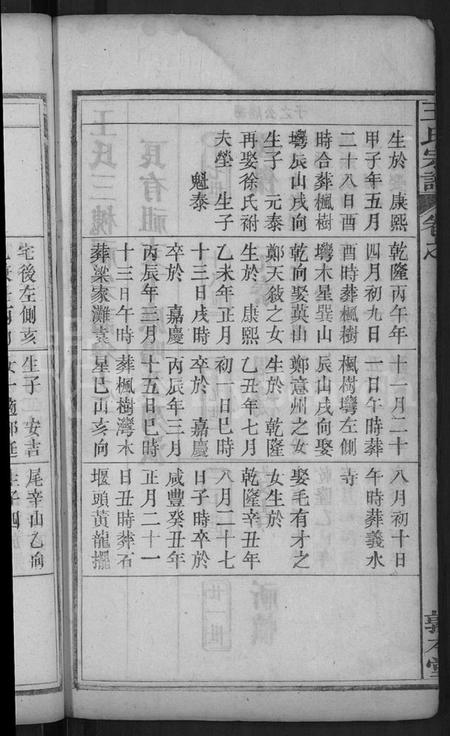 王氏宗譜
卷之
敦本堂
生於　康熙
甲子年五月
二十八日酉
時合葬楓樹
塆辰山戌向
生子　元泰
再娶徐氏祔
夫塋　生子
魁泰
乾隆丙午年
四月初九日
酉時葬楓樹
塆木星巽山
乾向娶英山
鄭天敘之女
生於　康熙
乙未年正月
十三日戌時
卒於　嘉慶
丙辰年三月
十三日午時
葬梁家灘袁
十一月二十
一日午時葬
楓樹塆左側
辰山戌向娶
鄭意州之女
生於　乾隆
乙丑年七月
初一日巳時
卒於　嘉慶
丙辰年三月
十五日巳時
葬楓樹灣木
星巳山亥向
八月初十日
午時葬義水
寺
娶毛有才之
女生於
乾隆辛丑年
八月二十七
日子時卒於
咸豐癸丑年
正月二十一
日丑時葬石
堰頭黃龍擺
宅後左側亥
生子　安吉
尾辛山乙向